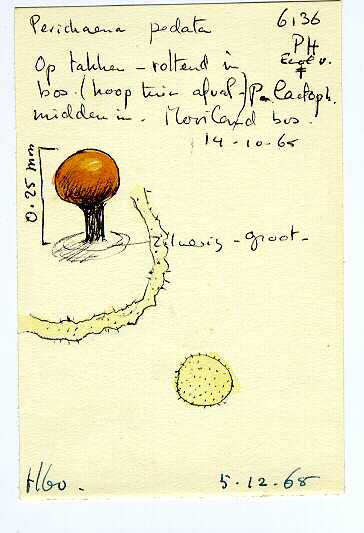 Perichaena pedata
6136
PH
Op takken - rottend in
bos. (hoop tuin afval -) P. Lactoph.
midden in. Mooiland bos.
14-10-68
0.25 mm
zilverig - groot -
H60.
5.12.68